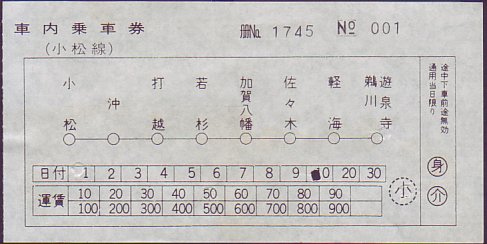 車内乗車券 冊№ 1745 № 001
(小松線)
小松 沖 打越 若杉 加賀八幡 佐々木 軽海 鵜川遊泉寺
途中下車前途無効
通用当日限り
日付 1 2 3 4 5 6 7 8 9 10 20 30
運賃 10 20 30 40 50 60 70 80 90
100 200 300 400 500 600 700 800 900
小
身
介